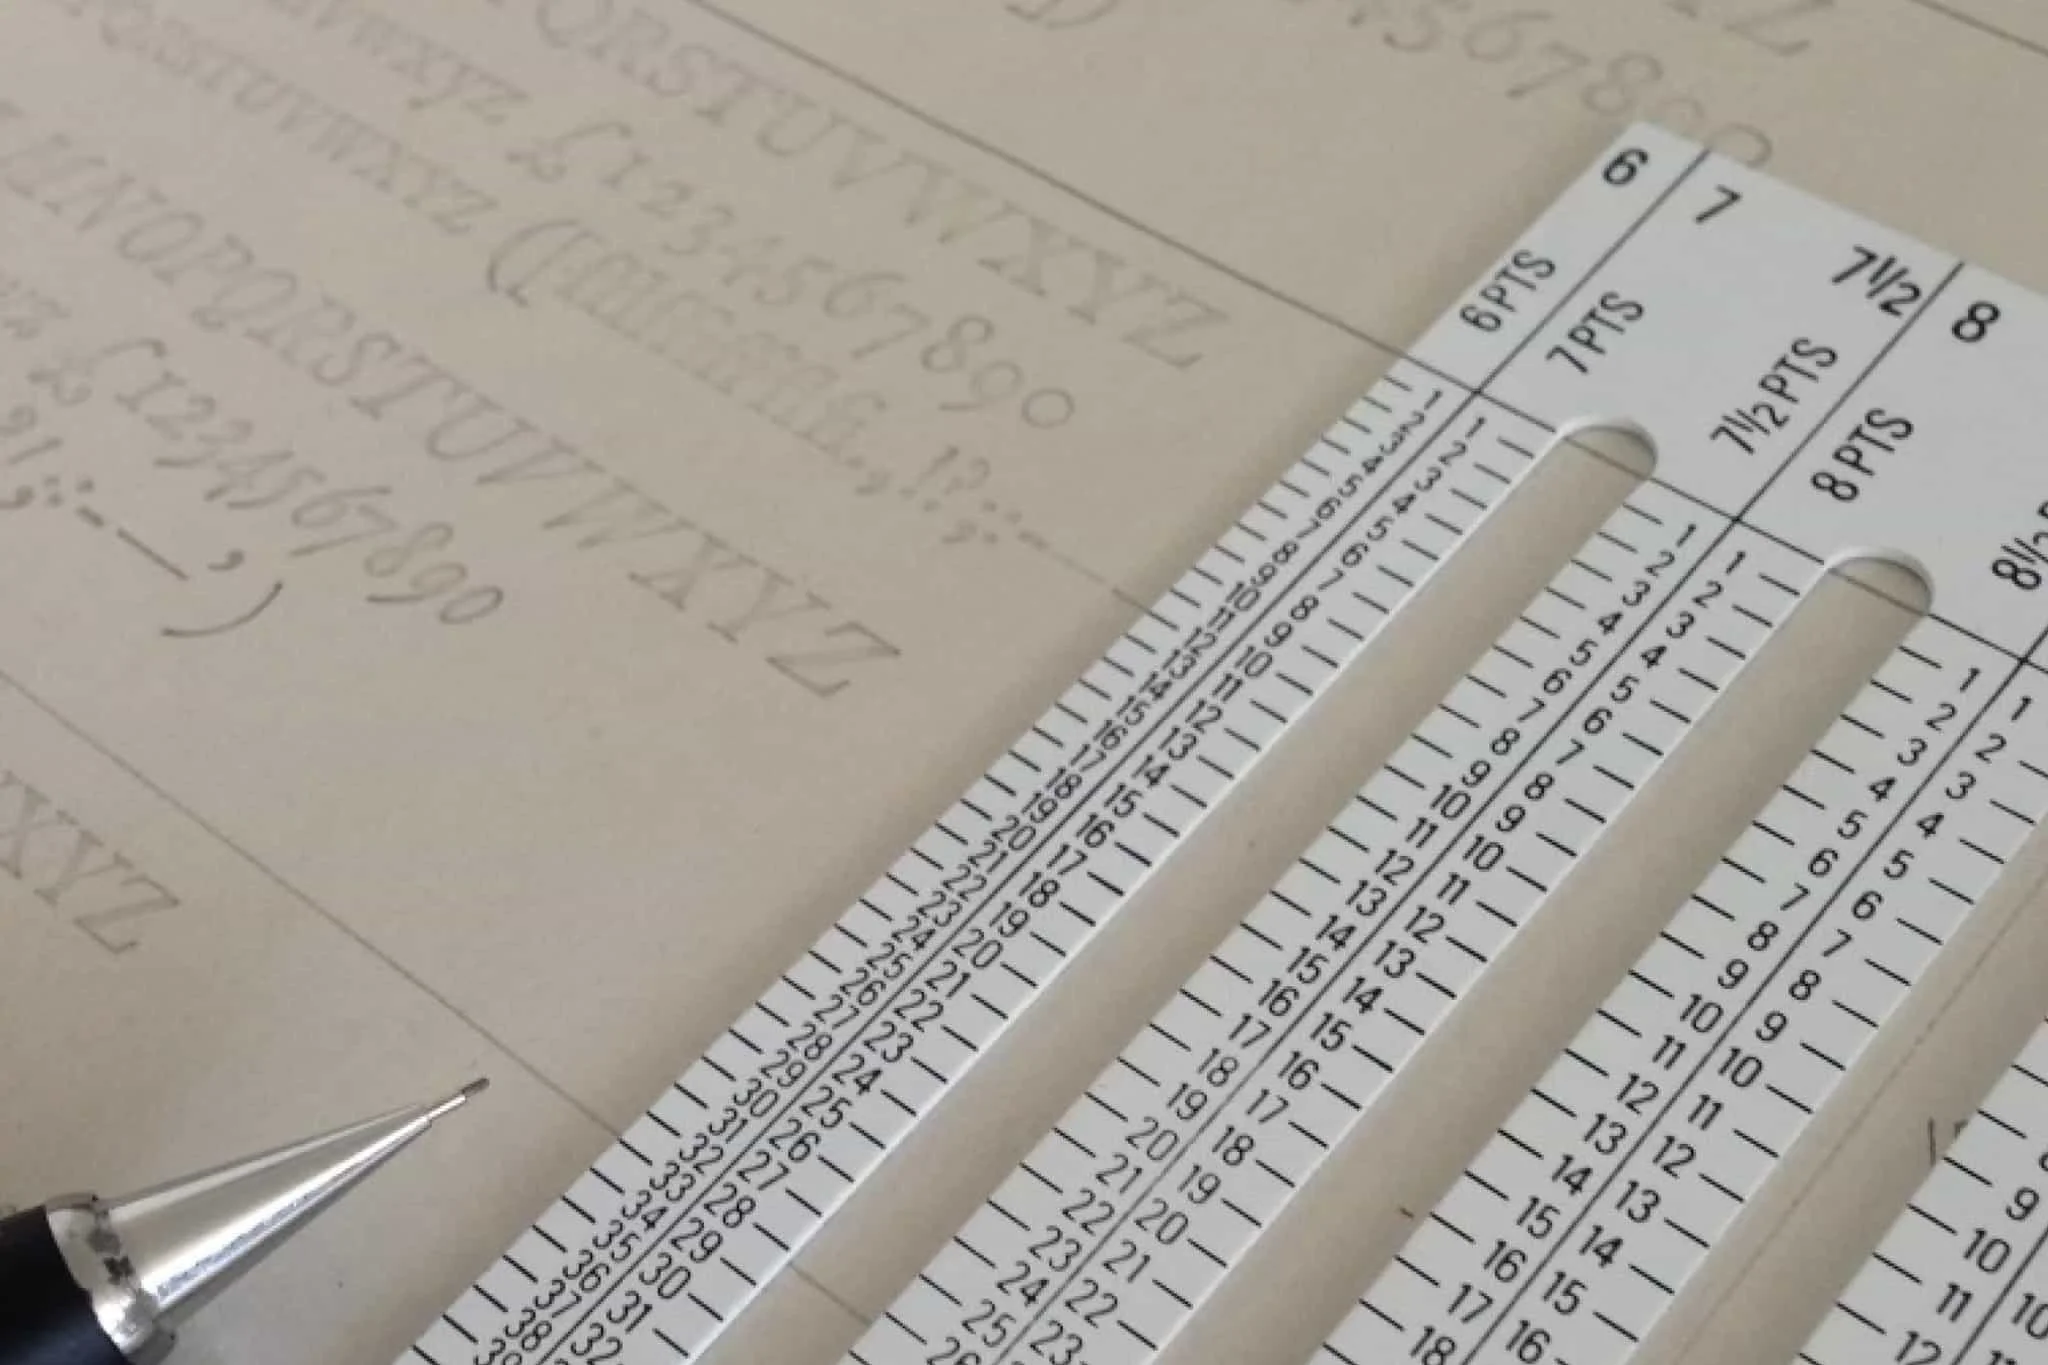 QRSTUVWXYZ
VWXYZ £1234567890
QRSTUVWXYZ (
MNOPQRSTUVWXYZ
£1234567890
XYZ
4567890
6
7
7½
8
6 PTS
7 PTS
7½ PTS
8 PTS
8½
1 2 3 4 5 6 7 8 9 10 11 12 13 14 15 16 17 18 19 20 21 22 23 24 25 26 27 28 29 30 31 32 33 34 35 36 37 38
1 2 3 4 5 6 7 8 9 10 11 12 13 14 15 16 17 18 19 20 21 22 23 24 25 26 27 28 29 30 31 32
1 2 3 4 5 6 7 8 9 10 11 12 13 14 15 16 17 18 19 20 21 22 23 24 25 26
1 2 3 4 5 6 7 8 9 10 11 12 13 14 15 16 17 18 19 20 21 22 23
1 2 3 4 5 6 7 8 9 10 11 12 13 14 15 16 17 18
1 2 3 4 5 6 7 8 9 10 11 12 13 14 15 16
9 10 11 12
10